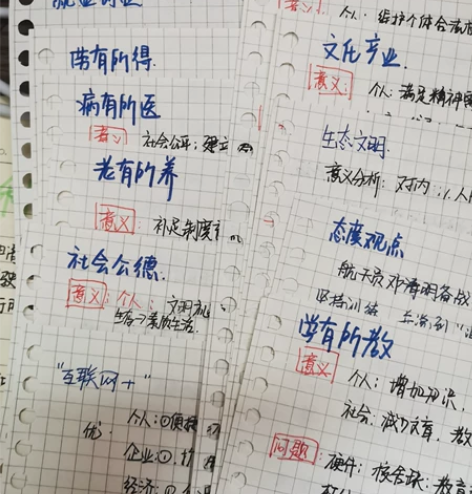 劳有所得
病有所医
意义 社会公平：建立
老有所养
意义 补足制度
社会公德
意义：个人：文明礼
生存→素质生活
"互联网+"
优：个人：①便捷
企业①.
经济：①
意义： 个人：维护个体合法
文化产业.
意义： 个人：满足精神
生态文明：
意义分析：对内：1.人
态度观点
航天员邓清明备战
坚持训练
学有所教
意义 个人：增加知识.
社会：减少文盲.教
问题：硬件：校舍环：教育